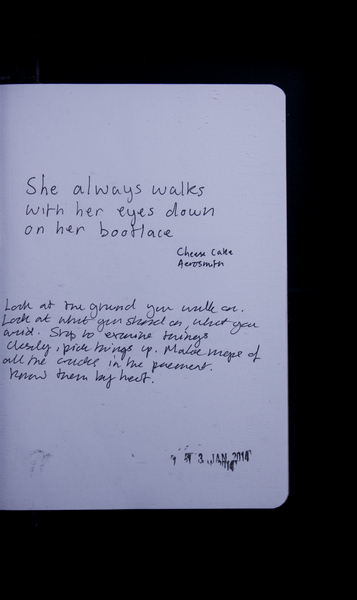 She always walks
with her eyes down
on her bootlace
Cheese Cake
Aerosmith
Look at the ground you walk on.
Look at what you stand on, what you
avoid. Stop to examine things
closely, pick things up. Make maps of
all the cracks in the pavement.
Know them by heart.
3 JAN 2014